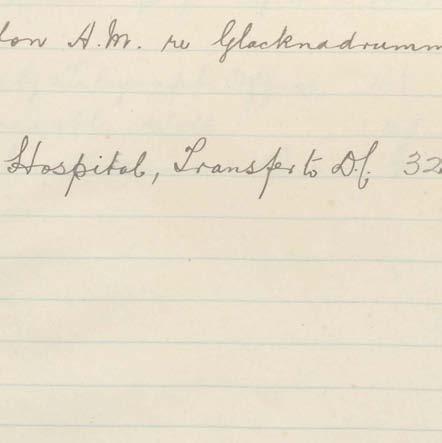 lon A.M. re Glacknadrumm
Hospital, Transfer to D.f. 32